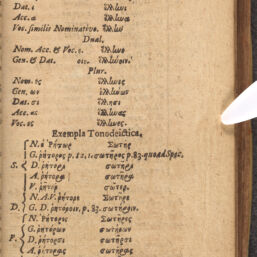 Dat. ι Ἕλληνι
Acc. α Ἕλληνα
Voc. similis Nominativo. Ἕλλην
Dual.
Nom. Acc. & Voc. ε. Ἕλληνε
Gen. & Dat. οιν. Ἑλλήνοιν.
Plur.
Nom. ες Ἕλληνες
Gen. ων Ἑλλήνων
Dat. σι Ἕλλησι
Acc. ας Ἕλληνας
Voc. ες Ἕλληνες.
Exempla Tonodeictica.
N. ὁ Ῥήτωρ Σωτὴρ
G. ῥήτορος p. 12, 1. σωτῆρος p. 83. quoad Spec.
S. D. ῥήτορι σωτῆρι
A. ῥήτορα σωτῆρα
V. ῥῆτορ σῶτερ.
N. A. V. ῥήτορε Σωτῆρε
D. G. D. ῥητόροιν, p. 83. σωτήροιν.
N. Ῥήτορες Σωτῆρες
G. ῥητόρων σωτήρων
P. D. ῥήτορσι σωτῆρσι
A. ῥήτορας σωτῆρας